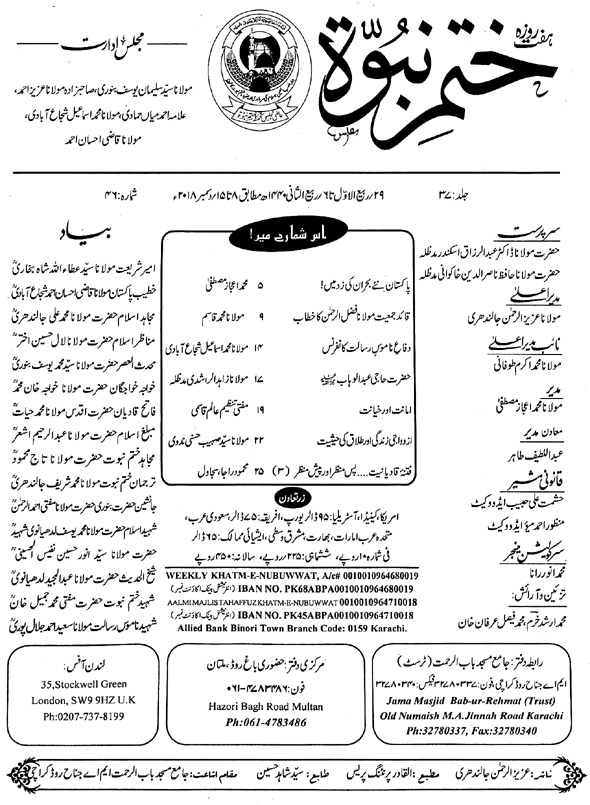 ہفت روزہ
ختم نبوۃ
مجلس
مجلس ادارت
مولانا سیّد سلیمان یوسف بنوری، صاحبزادہ مولانا عزیز احمد،
علامہ احمد میاں حمادی، مولانا محمد اسماعیل شجاع آبادی،
مولانا قاضی احسان احمد
جلد: ۳۷
۲۹/ربیع الاوّل تا ۶/ربیع الثانی ۱۴۴۰ھ مطابق ۸ تا ۱۵/دسمبر ۲۰۱۸ء
شمارہ: ۴۶
سرپرست
حضرت مولانا ڈاکٹر عبدالرزاق اسکندر مدظلہ
حضرت مولانا حافظ ناصرالدین خاکوانی مدظلہ
مدیر اعلیٰ
مولانا عزیز الرحمٰن جالندھری
نائب مدیر اعلیٰ
مولانا محمد اکرم طوفانی
مدیر
مولانا محمد اعجاز مصطفیٰ
معاون مدیر
عبداللطیف طاہر
قانونی مشیر
حشمت علی حبیب ایڈووکیٹ
منظور احمد میؤ ایڈووکیٹ
سرکولیشن منیجر
محمد انور رانا
تزئین و آرائش:
محمد ارشد خرم، محمد فیصل عرفان خان
اس شمارے میں!
پاکستان نئے بحران کی زد میں! ۵ محمد اعجاز مصطفیٰ
قائد جمعیت مولانا فضل الرحمٰن کا خطاب ۹ مولانا محمد قاسم
دفاع ناموسِ رسالت کانفرنس ۱۴ مولانا محمد اسماعیل شجاع آبادی
حضرت حاجی عبدالوہاب ۱۷ مولانا زاہد الراشدی مدظلہ
امانت اور خیانت ۱۹ مفتی تنظیم عالم قاسمی
ازدواجی زندگی اور طلاق کی حیثیت ۲۲ مولانا سیّد صہیب حسنی ندوی
فتنۂ قادیانیت.... پس منظر اور پیش منظر (۳) ۲۵ محمود راجا، سجاول
زر تعاون
امریکا، کینیڈا، آسٹریلیا: ۹۵ ڈالر یورپ، افریقہ: ۷۵ ڈالر، سعودی عرب،
متحدہ عرب امارات، بھارت، مشرق وسطیٰ، ایشیائی ممالک: ۶۵ ڈالر
فی شمارہ ۱۰ روپے، ششماہی: ۲۲۵ روپے، سالانہ: ۴۵۰ روپے
WEEKLY KHATM-E-NUBUWWAT, A/c# 0010010964680019
IBAN NO. PK68ABPA0010010964680019 (انٹرنیشنل بینک اکاؤنٹ نمبر)
AALMI MAJLIS TAHAFFUZ KHATM-E-NUBUWWAT 0010010964710018
IBAN NO. PK45ABPA0010010964710018 (انٹرنیشنل بینک اکاؤنٹ نمبر)
Allied Bank Binori Town Branch Code: 0159 Karachi.
بیاد
امیر شریعت مولانا سیّد عطاء اللہ شاہ بخاریؒ
خطیب پاکستان مولانا قاضی احسان احمد شجاع آبادیؒ
مجاہد اسلام حضرت مولانا محمد علی جالندھریؒ
مناظر اسلام حضرت مولانا لال حسین اخترؒ
محدث العصر حضرت مولانا سیّد محمد یوسف بنوریؒ
خواجہ خواجگان حضرت مولانا خواجہ خان محمدؒ
فاتح قادیان حضرت اقدس مولانا محمد حیاتؒ
مبلغ اسلام حضرت مولانا عبدالرحیم اشعرؒ
مجاہد ختم نبوت حضرت مولانا تاج محمودؒ
ترجمان ختم نبوت حضرت مولانا محمد شریف جالندھریؒ
جانشین حضرت بنوری حضرت مولانا مفتی احمد الرحمٰنؒ
شہید اسلام حضرت مولانا محمد یوسف لدھیانوی شہیدؒ
حضرت مولانا سیّد انور حسین نفیس الحسینیؒ
شیخ الحدیث حضرت مولانا عبدالمجید لدھیانویؒ
شہید ختم نبوت حضرت مفتی محمد جمیل خانؒ
شہید ناموس رسالت مولانا سعید احمد جلال پوریؒ
رابطہ دفتر: جامع مسجد باب الرحمت (ٹرسٹ)
ایم اے جناح روڈ کراچی، فون: ۳۲۷۸۰۳۳۷، فیکس: ۳۲۷۸۰۳۴۰
Jama Masjid Bab-ur-Rehmat (Trust)
Old Numaish M.A.Jinnah Road Karachi
Ph:32780337, Fax:32780340
مرکزی دفتر: حضوری باغ روڈ، ملتان
فون: ۰۶۱-۴۷۸۳۴۸۶
Hazori Bagh Road Multan
Ph:061-4783486
لندن آفس:
35,Stockwell Green
London, SW9 9HZ U.K
Ph:0207-737-8199
ناشر: عزیز الرحمٰن جالندھری مطبع: القادر پرنٹنگ پریس طابع: سیّد شاہد حسین مقام اشاعت: جامع مسجد باب الرحمت ایم اے جناح روڈ کراچی